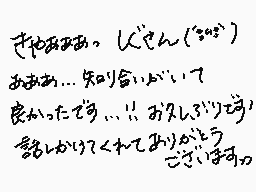 きゃあああっ しぐさん(´;ω;`)
あああ…知り合いがいて
良かったです…!! お久しぶりです!
話しかけてくれてありがとう
ございますっ